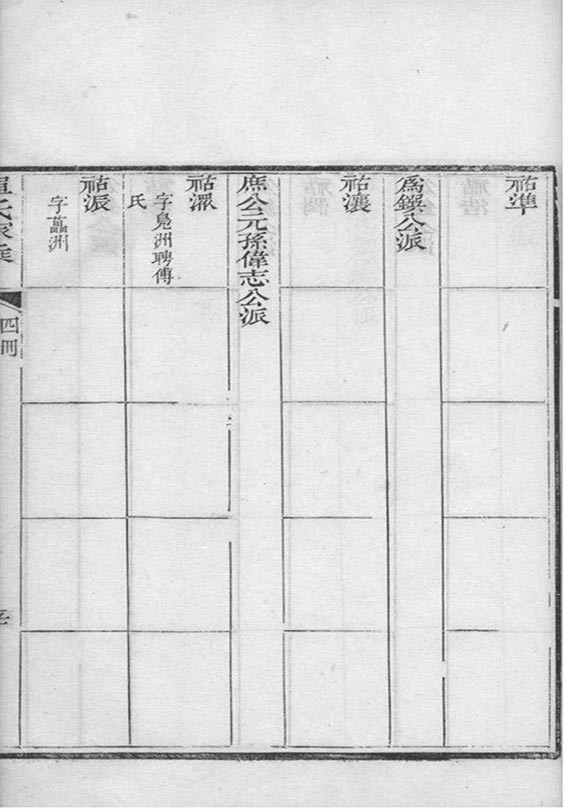 祜準
為鏌公派
祜瀼
庶公元孫偉志公派
祜潀
字鳧洲聘傅
氏
祜派
字藟洲
氏家乘
四冊